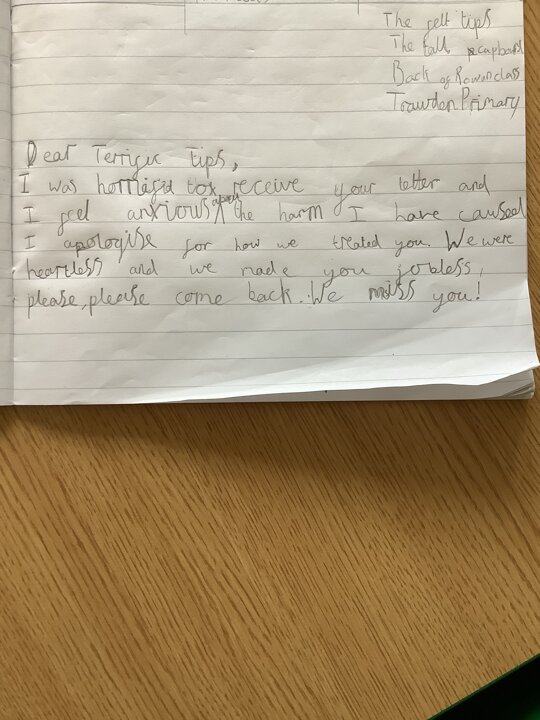 The felt tips
The tall cupboard
Back of Rowan class
Trawden Primary
Dear Terrific tips,
I was horrified to receive your letter and
I feel anxious about the harm I have caused
I apologise for how we treated you. We were
heartless and we made you jobless,
please, please come back. We miss you!